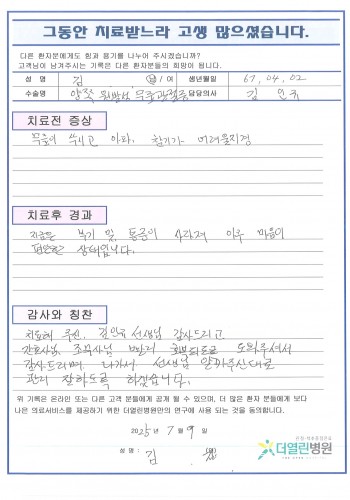 그동안 치료받느라 고생 많으셨습니다.
다른 환자분에게도 힘과 용기를 나누어 주시겠습니까?
고객님이 남겨주시는 기록은 다른 환자분들의 희망이 됩니다.
성 명 김 남 / 여 생년월일 67. 04. 02
수술명 양쪽 무릎관절증 담당의사 김
치료전 증상
무릎이 쑤시고 아파, 걷기가 어려울지경
치료후 경과
지금은 붓기 및 통증이 사라져 아주 마음이
편안한 상태입니다.
감사와 칭찬
치료해 주신, 김 선생님 감사드리고
간호사님, 조무사님 빨리 회복되도록 도와주셔서
감사드리며 나가서 선생님 알려주신대로
관리 잘하도록 하겠습니다.
위 기록은 온라인 또는 다른 고객 분들에게 공개 될 수 있으며, 더 많은 환자 분들에게 보다
나은 의료서비스를 제공하기 위한 더열린병원만의 연구에 사용 되는 것을 동의합니다.
2025년 7월 9일
성 명 : 김
더열린병원